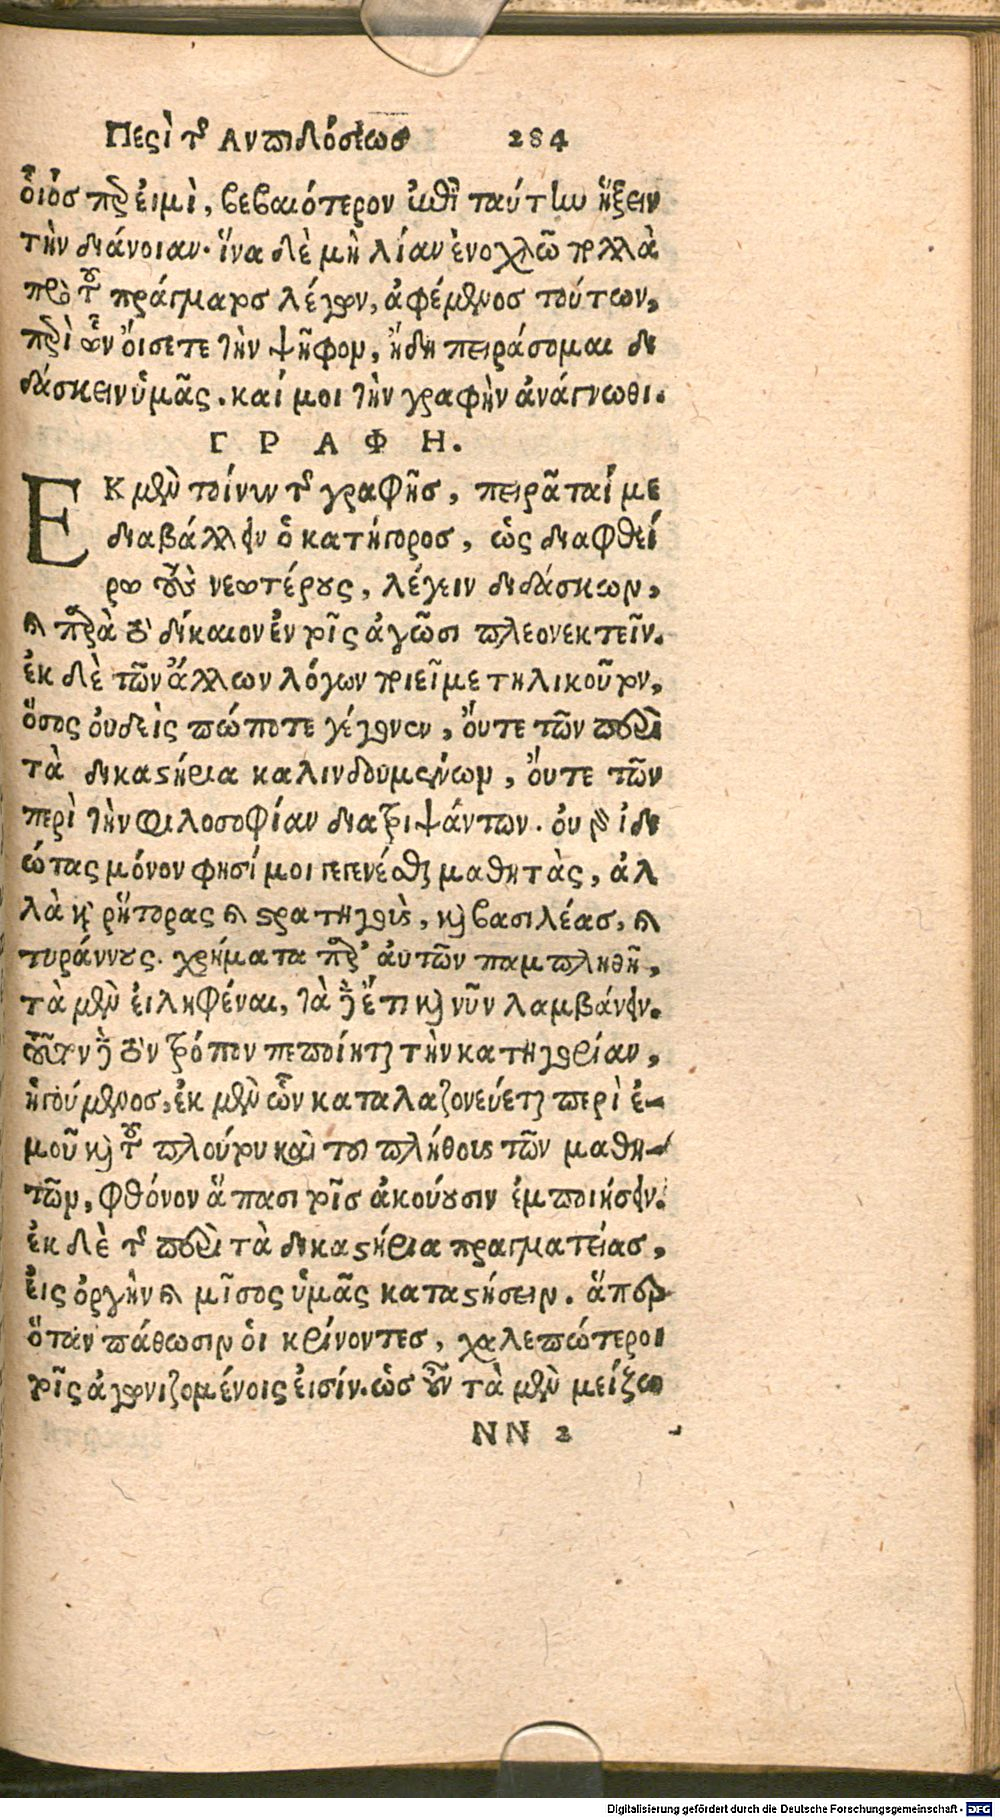 Περὶ τῆς Ἀντιδόσεως 284
οἷός περ εἰμὶ, βεβαιότερον ὑμᾶς ταύτην ἥξειν
τὴν διάνοιαν. ἵνα δὲ μὴ λίαν ἐνοχλῶ πολλὰ
πρὸ τοῦ πράγματος λέγων, ἀφέμενος τούτων,
περὶ ὧν οἴσετε τὴν ψῆφον, ἤδη πειράσομαι δι
δάσκειν ὑμᾶς. καί μοι τὴν γραφὴν ἀνάγνωθι.
ΓΡΑΦΗ.
ΕΚ μὲν τοίνυν τῆς γραφῆς, πειρᾶταί με
διαβάλλειν ὁ κατήγορος, ὡς διαφθεί
ρω τοὺς νεωτέρους, λέγειν διδάσκων,
καὶ παρὰ τὸ δίκαιον ἐν τοῖς ἀγῶσι πλεονεκτεῖν.
ἐκ δὲ τῶν ἄλλων λόγων ποιεῖ με τηλικοῦτον,
ὅσος οὐδεὶς πώποτε γέγονεν, οὔτε τῶν περὶ
τὰ δικαστήρια καλινδουμένων, οὔτε τῶν
περὶ τὴν φιλοσοφίαν διατριψάντων. οὐ γὰρ ἰδι
ώτας μόνον φησί μοι γεγενέσθαι μαθητὰς, ἀλ
λὰ καὶ ῥήτορας καὶ στρατηγοὺς, καὶ βασιλέας, καὶ
τυράννους. χρήματα παρ' αὐτῶν παμπληθῆ,
τὰ μὲν εἰληφέναι, τὰ δὲ ἔτι καὶ νῦν λαμβάνειν.
τοῦτον δὲ τὸν τρόπον πεποίηται τὴν κατηγορίαν,
ἡγούμενος, ἐκ μὲν ὧν καταλαζονεύεται περὶ ἐ-
μοῦ καὶ τοῦ πλούτου καὶ τοῦ πλήθους τῶν μαθη-
τῶν, φθόνον ἅπασι τοῖς ἀκούουσιν ἐμποιήσειν.
ἐκ δὲ τῆς περὶ τὰ δικαστήρια πραγματείας,
εἰς ὀργὴν καὶ μῖσος ὑμᾶς καταστήσειν. ἅπερ
ὅταν πάθωσιν οἱ κρίνοντες, χαλεπώτεροι
τοῖς ἀγωνιζομένοις εἰσίν. ὡς οὖν τὰ μὲν μείζω
NN 2
Digitalisierung gefördert durch die Deutsche Forschungsgemeinschaft - DFG